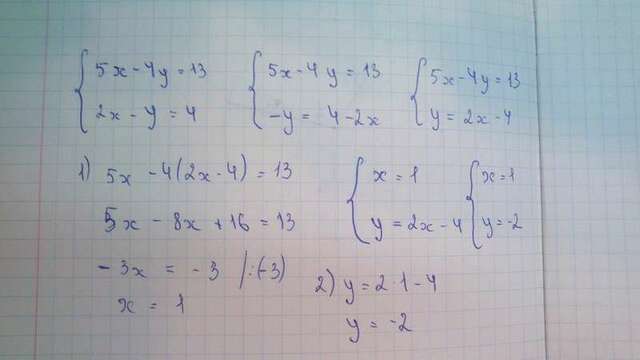 5x - 4y = 13
2x - y = 4
5x - 4y = 13
-y = 4 - 2x
5x - 4y = 13
y = 2x - 4
1) 5x - 4(2x - 4) = 13
5x - 8x + 16 = 13
- 3x = - 3 |:(-3)
x = 1
x = 1
y = 2x - 4
x = 1
y = -2
2) y = 2 · 1 - 4
y = -2